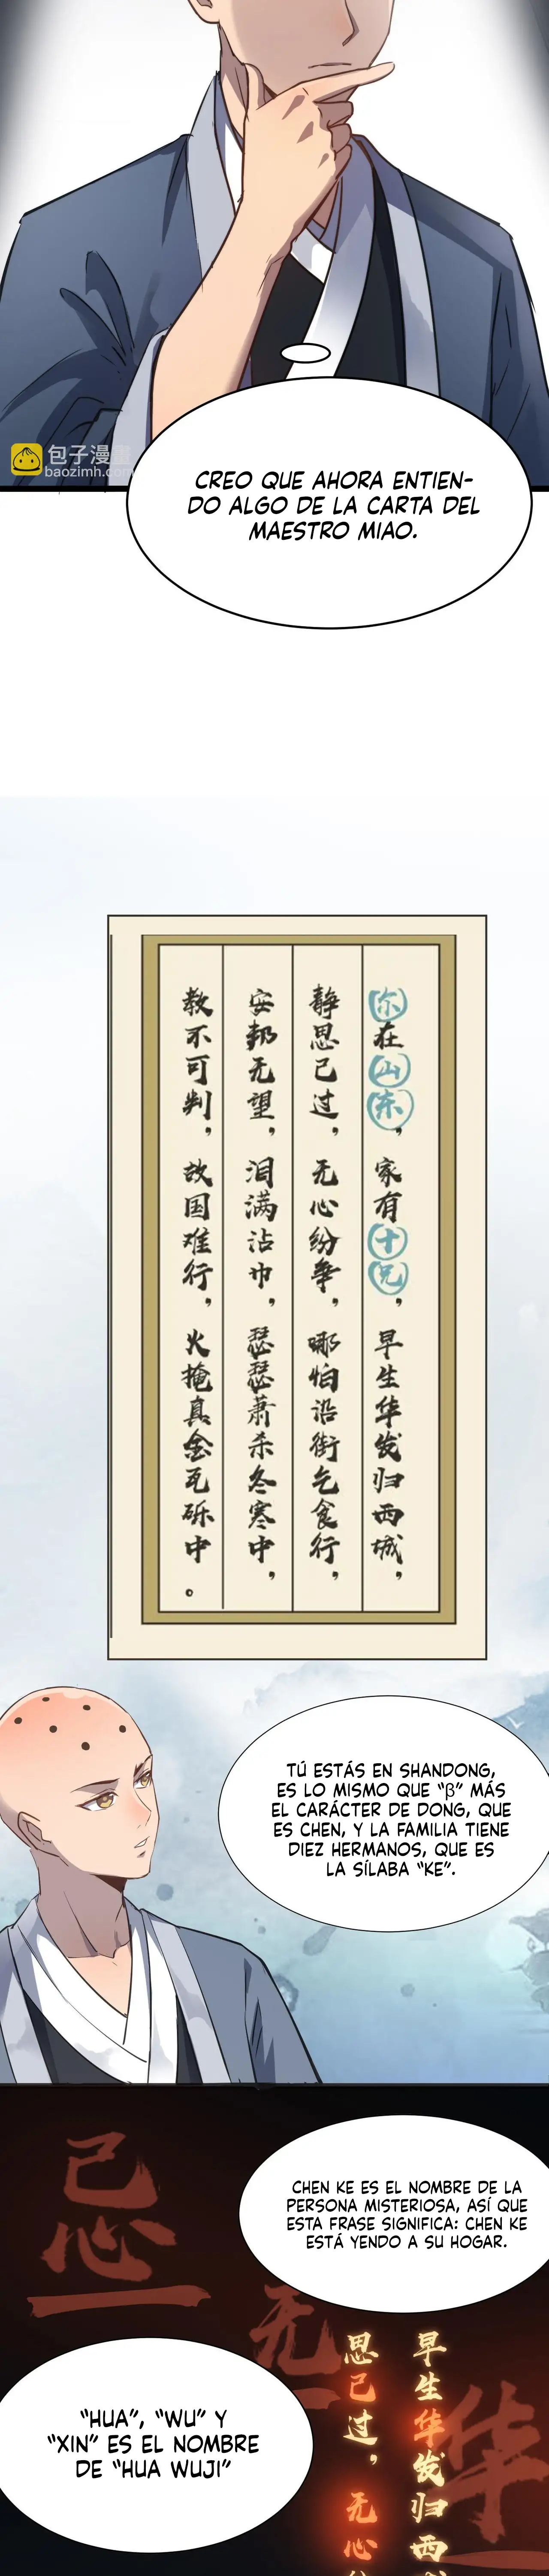 包子漫畫
baozimh.com
CREO QUE AHORA ENTIEN-
DO ALGO DE LA CARTA DEL
MAESTRO MIAO.
你在山东，家有十兄，早生华发归西城，
静思己过，无心纷争，哪怕沿街乞食行，
安邦无望，泪满沾巾，瑟瑟萧杀冬寒中，
教不可判，故国难行，火掩真金瓦砾中。
TÚ ESTÁS EN SHANDONG,
ES LO MISMO QUE “β” MÁS
EL CARÁCTER DE DONG, QUE
ES CHEN, Y LA FAMILIA TIENE
DIEZ HERMANOS, QUE ES
LA SÍLABA “KE”.
CHEN KE ES EL NOMBRE DE LA
PERSONA MISTERIOSA, ASÍ QUE
ESTA FRASE SIGNIFICA: CHEN KE
ESTÁ YENDO A SU HOGAR.
忌
无
华
早生华发归西
思己过，无心
“HUA”, “WU” Y
“XIN” ES EL NOMBRE
DE “HUA WUJI”